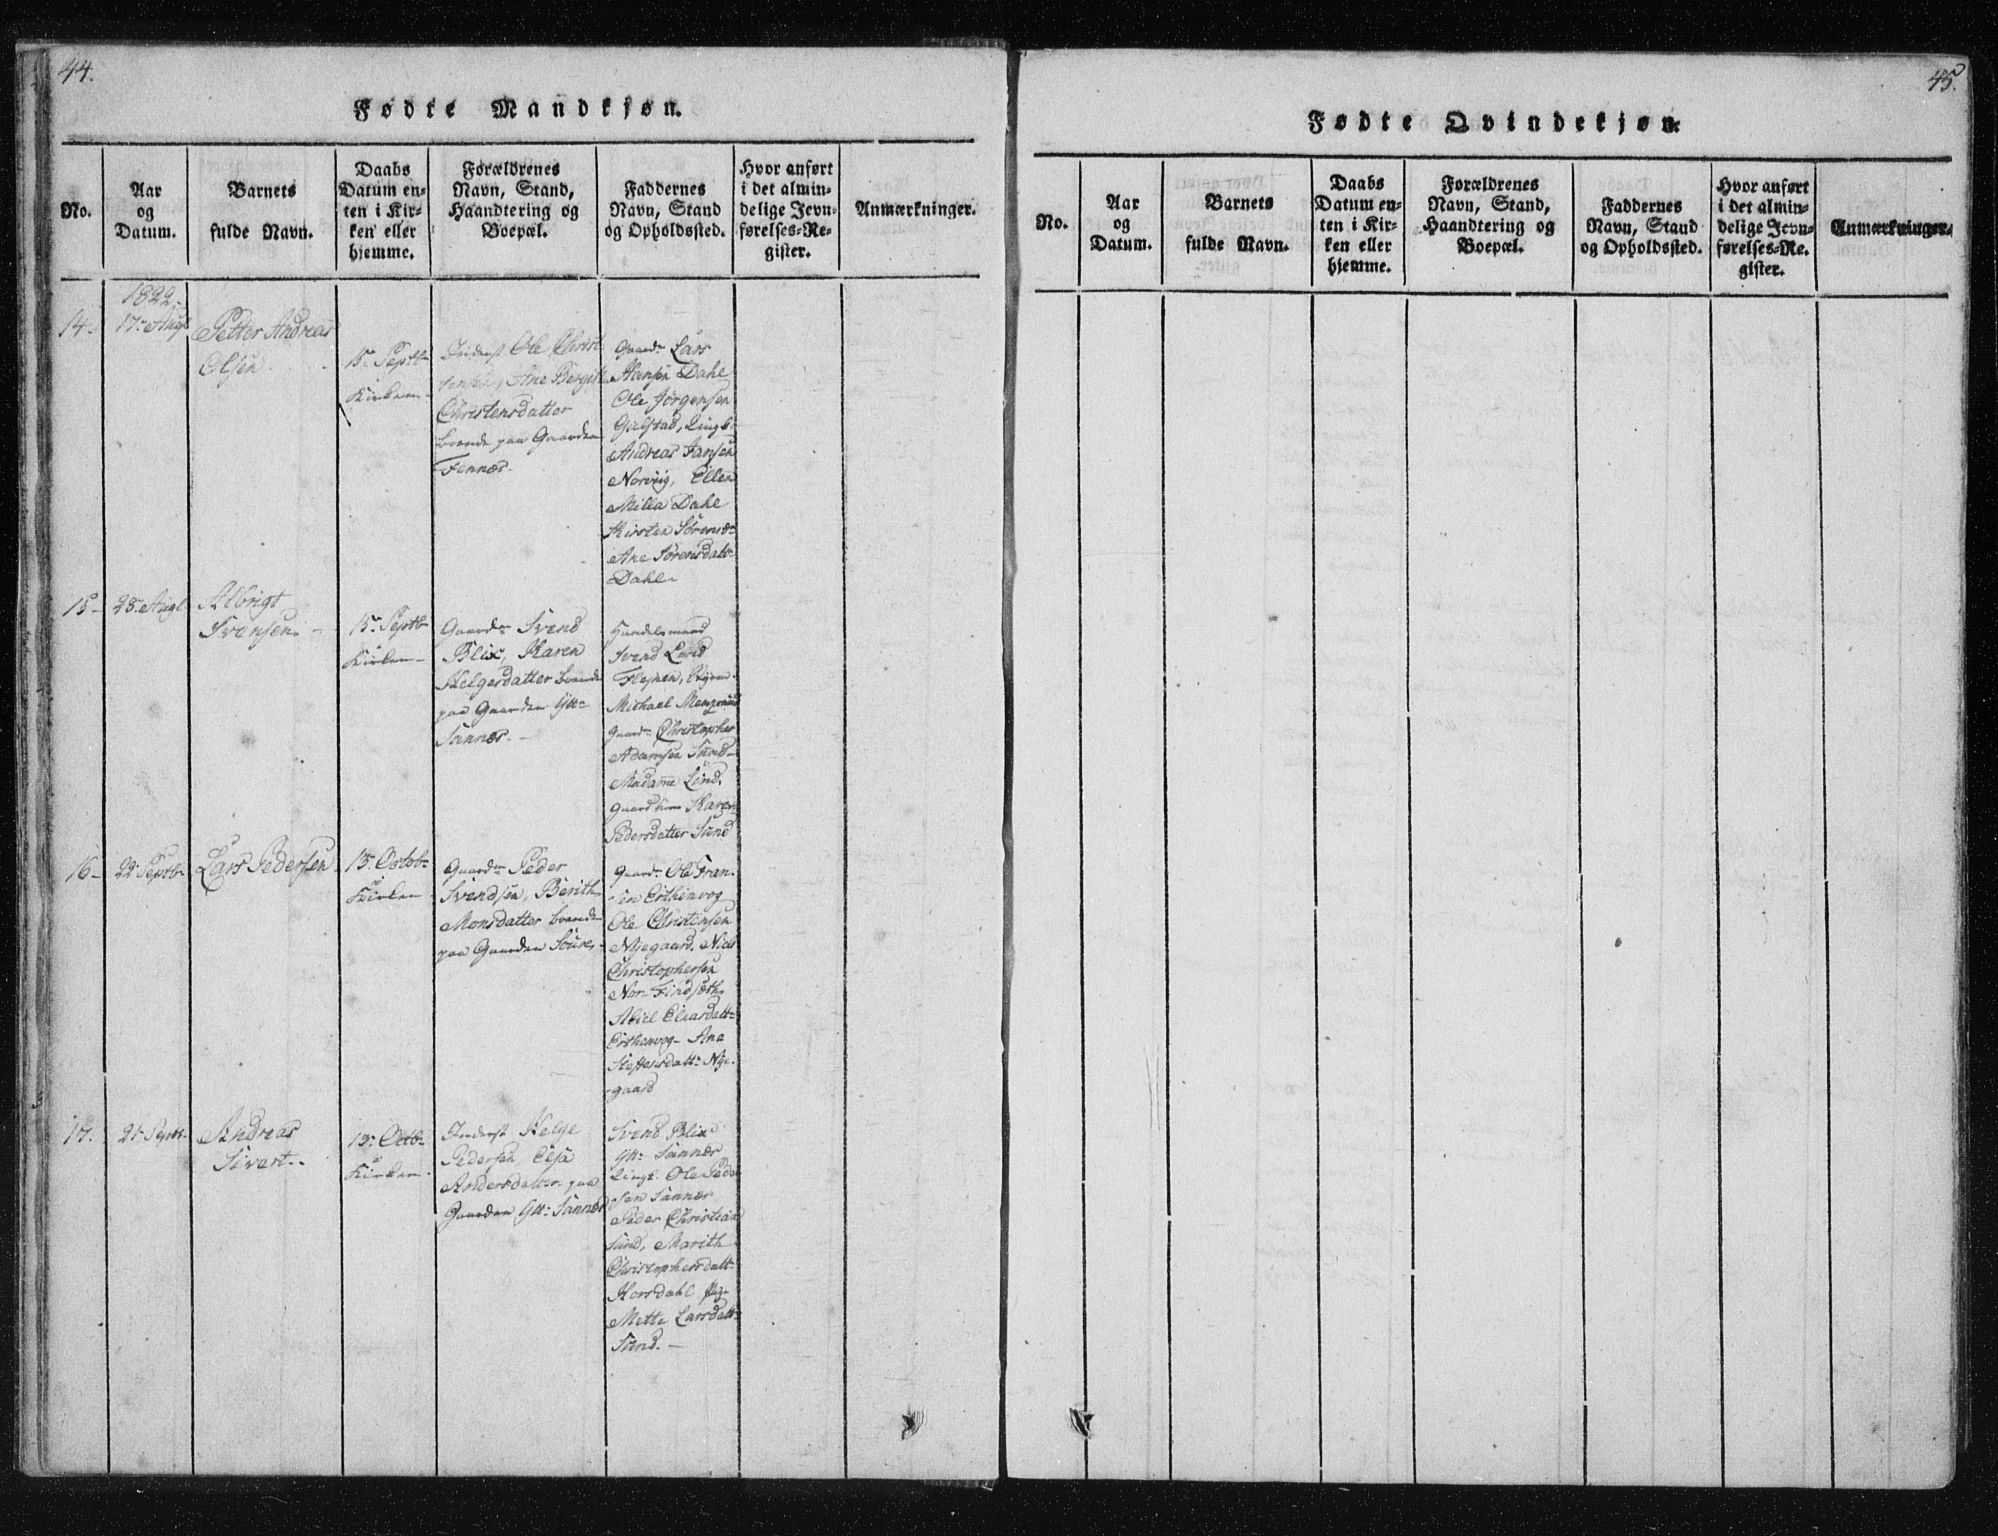 44.
Fødte Mandkjøn.
No.
Aar
og
Datum.
Barnets
fulde Navn.
Daabs
Datum en-
ten i Kir-
ken eller
hjemme.
Forældrenes
Navn, Stand,
Haandtering og
Boepæl.
Faddernes
Navn, Stand
og Opholdssted.
Hvor anført
i det almin-
delige Jevn-
førelses-Re-
gister.
Anmærkninger.
1822.
14.
17. Augt
Petter Andreas
Olsen
15. Septb
Kirken
Inderst Ole Christ
tensen, Ane Bergitte
Christensdatter
boende paa Gaarden
Fennæs.
Gaardm Lars
Hansen Dahl
Ole Jørgensen
Andreas Jansen
Norviig, Ellen
Milla Dahl
Kirsten Sørensd
Ane Sørensdatt
Dahl
15
28. Augt
Albrigt
Svensen
15. Septb
Kirken
Gaardm Svend
Blix, Karen
Helgesdatter boende
paa Gaarden Ytt
Sannæs.
Handelsmand
Svend Lind
Michael
Gaardm Christopher
Adamsen Sund
Madame Lind
Karen
Pedersdatter Sund
16
22. Septb
Lars Pedersen
13. Octob
Kirken
Gaardm Peder
Svendsen, Berith
Monsdatter boende
paa Gaarden
Gaardm Ole Fran-
sen
Ole Christensen
Nyegaard, Niels
Christophersen
Nor
Abiel
Ane
Steffensdatt Nye-
gaard
17.
21. Septb.
Andreas
Sivert
13. Octb
Kirken
Inderst Helge
Pedersen, Elsa
Andersdatter paa
Gaarden Ytt: Sannæs
Svend Blix
Ytt: Sannæs
Ole Peder
sen Sannæs
Peder Christian
Sund, Marith
Christophersdatt
Korsdahl Pige
Mette Larsdatt
Sund.
45.
Fødte Qvindekjøn.
No.
Aar
og
Datum.
Barnets
fulde Navn.
Daabs
Datum en-
ten i Kir-
ken eller
hjemme.
Forældrenes
Navn, Stand,
Haandtering og
Boepæl.
Faddernes
Navn, Stand
og Opholdssted.
Hvor anført
i det almin-
delige Jevn-
førelses-Re-
gister.
Anmærkninger.